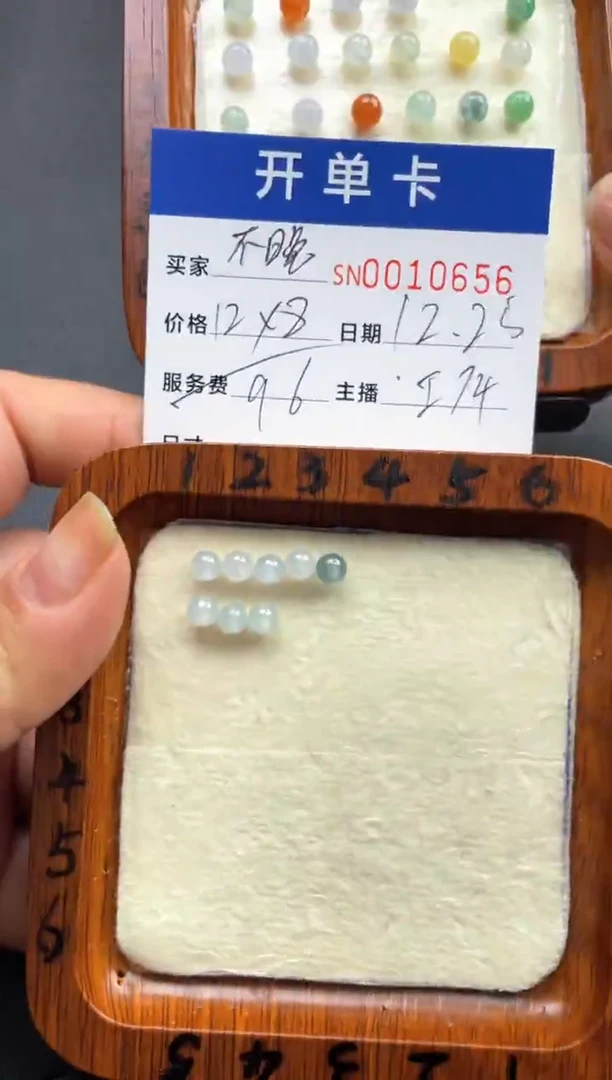 开单卡
买家 不晚 SN0010656
价格 12×8 日期 12.25
服务费 96 主播
尺寸
1 2 3 4 5 6
3
4
5
6
5 4 3 2 1